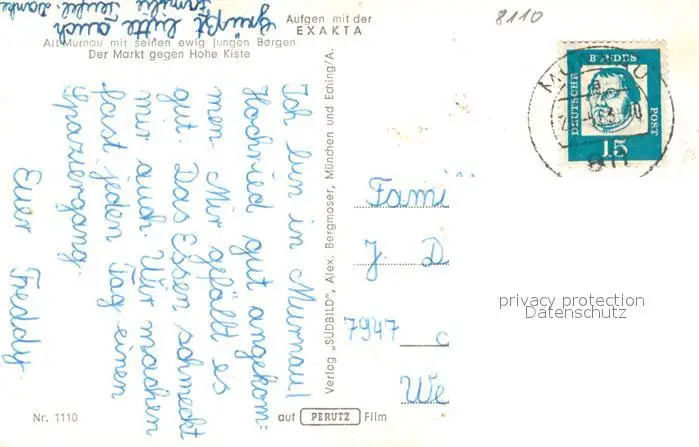 grüßt bitte auch
Familie Teufel. Danke
Aufgen mit der
EXAKTA
8110
Alt-Murnau mit seinen ewig jungen Bergen
Der Markt gegen Hohe Kiste
Ich bin in Murnau/
Hochried gut angekom=
men. Mir gefällt es
gut. Das Essen schmeckt
mir auch. Wir machen
fast jeden Tag einen
Spaziergang.
Euer Freddy.
Verlag „SÜDBILD", Alex. Bergmoser, München und Eching/A.
DEUTSCHE BUNDES POST
15
MURNAU
811
Fami
J. D
7947
We
privacy protection
Datenschutz
Nr. 1110
auf PERUTZ Film